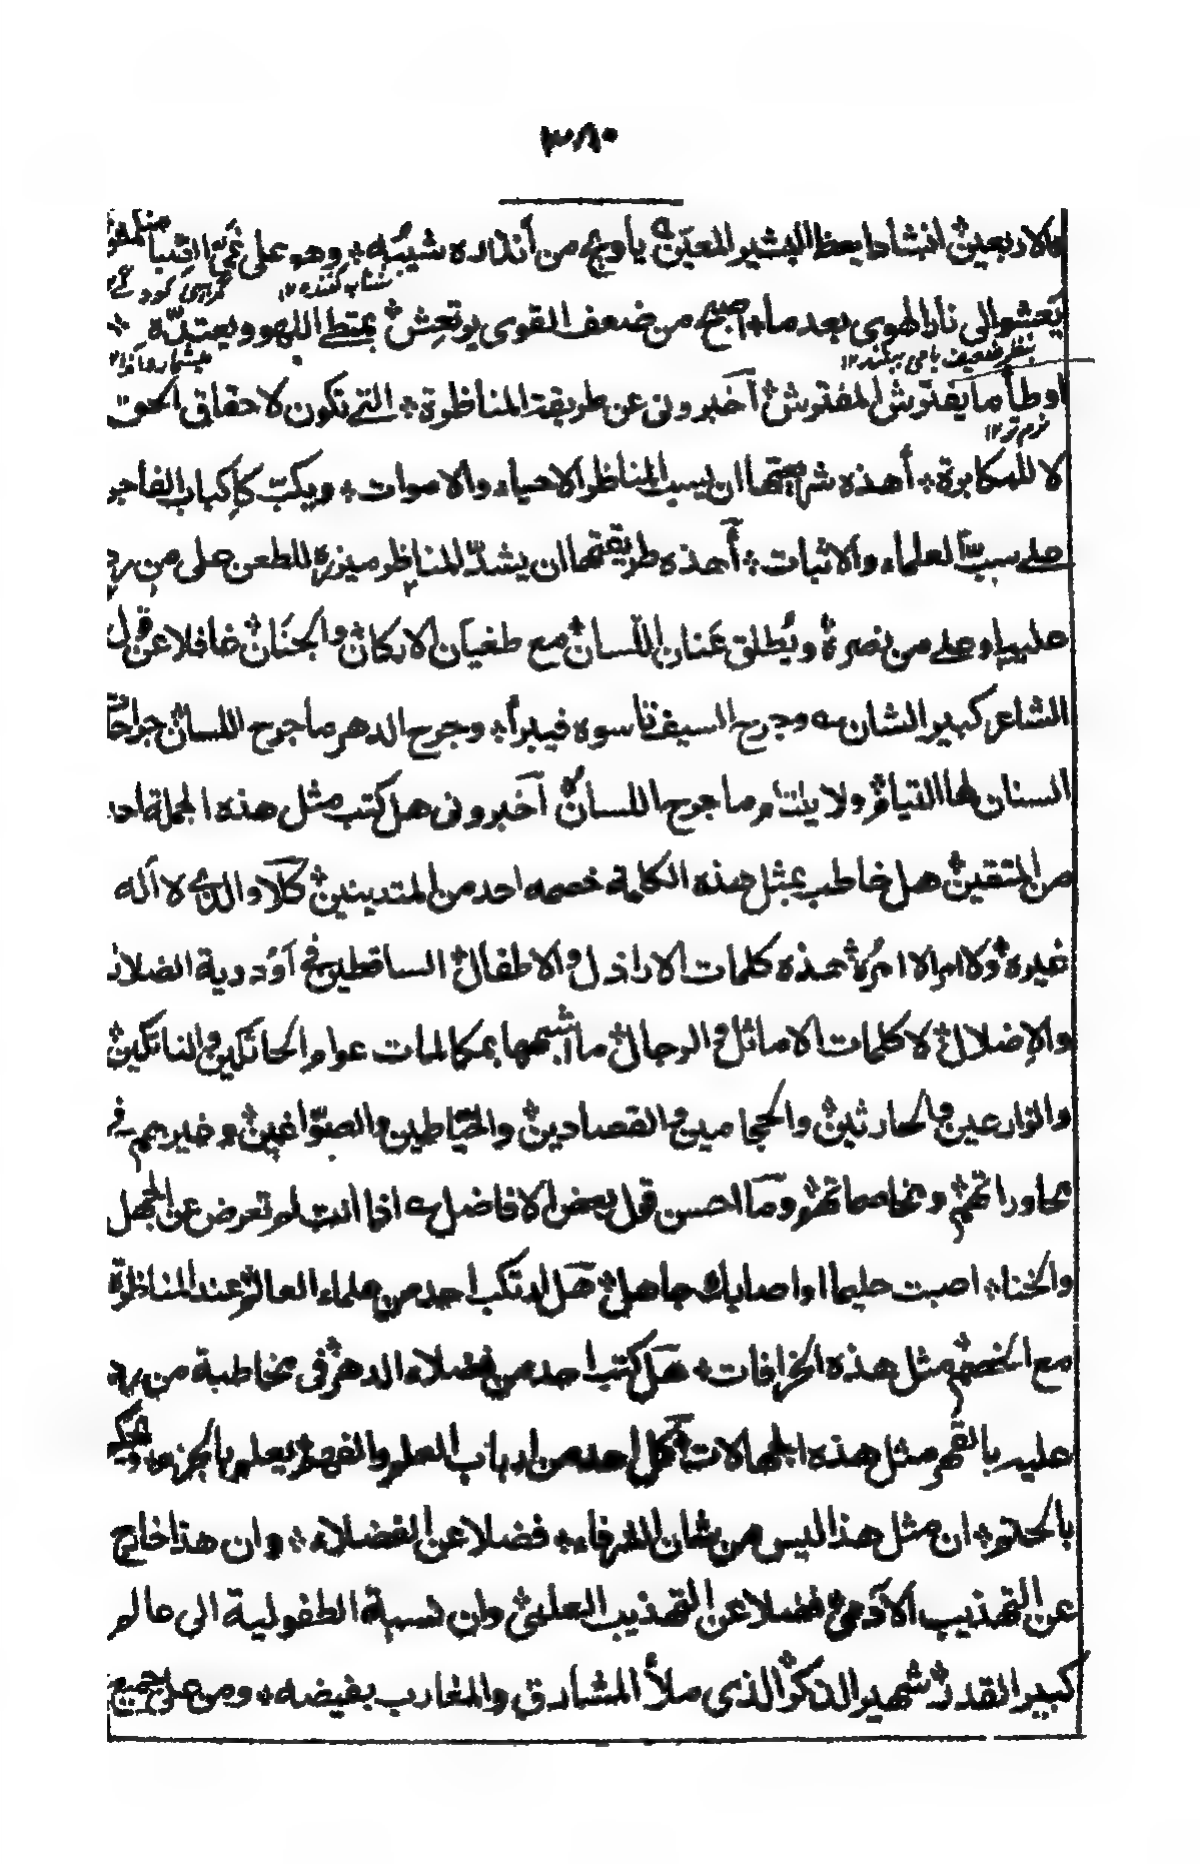 ٣٨٠
مالاربعين انشاد ايعظ البشير المعين يا ويح من أنذاره شيبه وهو على غي
يعشو الى نار الهوى بعد ما اصبح من ضعف القوى يرتعش يمتطي اللهو ويعتده
اوطأ ما يفترش المفترش أخبرونى عن طريقة المناظرة التي تكون لاحقاق الحق
لا للمكابرة أهذه شريعتها ان يسب المناظر الاحياء والاموات ويكب كإكباب الفاجر
على سب العلماء والاثبات أهذه طريقتها ان يشد المناظر ميزره للطعن على من رد
عليه او على من نصره ويطلق عنان اللسان مع طغيان الاركان والجنان غافلا عن قول
الشاعر كبير الشان وجرح السيف تأسوه فيبرأ وجرح الدهر ما جرح اللسان جراحات
السنان لها التيام ولا يلتام ما جرح اللسان أخبرونى هل كتب مثل هذه الجملة احد
من المتقين هل خاطب بمثل هذه الكلمة خصمه احد من المتدينين كلا والذي لا اله
غيره ولا امر الا امره هذه كلمات الاراذل والاطفال الساقطين في اودية الضلال
والاضلال لا كلمات الاماثل والرجال ما اشبهها بمكالمات عوام الحائكين والنائكين
والزارعين والحارثين والحجامين والقصادين والخياطين والصواغين وغيرهم في
محاوراتهم ومخاصماتهم وما احسن قول بعض الافاضل اذا انت لم تعرض عن الجهل
والخنا اصبت حليما او اصابك جاهل هل ارتكب احد من علماء العالم عند المناظرة
مع الخصم مثل هذه الخرافات هل كتب احد من فضلاء الدهر فى مخاطبة من رد
عليه بالقهر مثل هذه الجهالات كل احد من ارباب العلم والفهم يعلم بالجزم
بالحتم ان مثل هذا ليس من شان العرفاء فضلا عن الفضلاء وان هذا خارج
عن التهذيب الادمي فضلا عن التهذيب العلمي وان نسبة الطفولية الى عالم
كبير القدر شهير الذكر الذى ملأ المشارق والمغارب بفيضه ومن على جميع